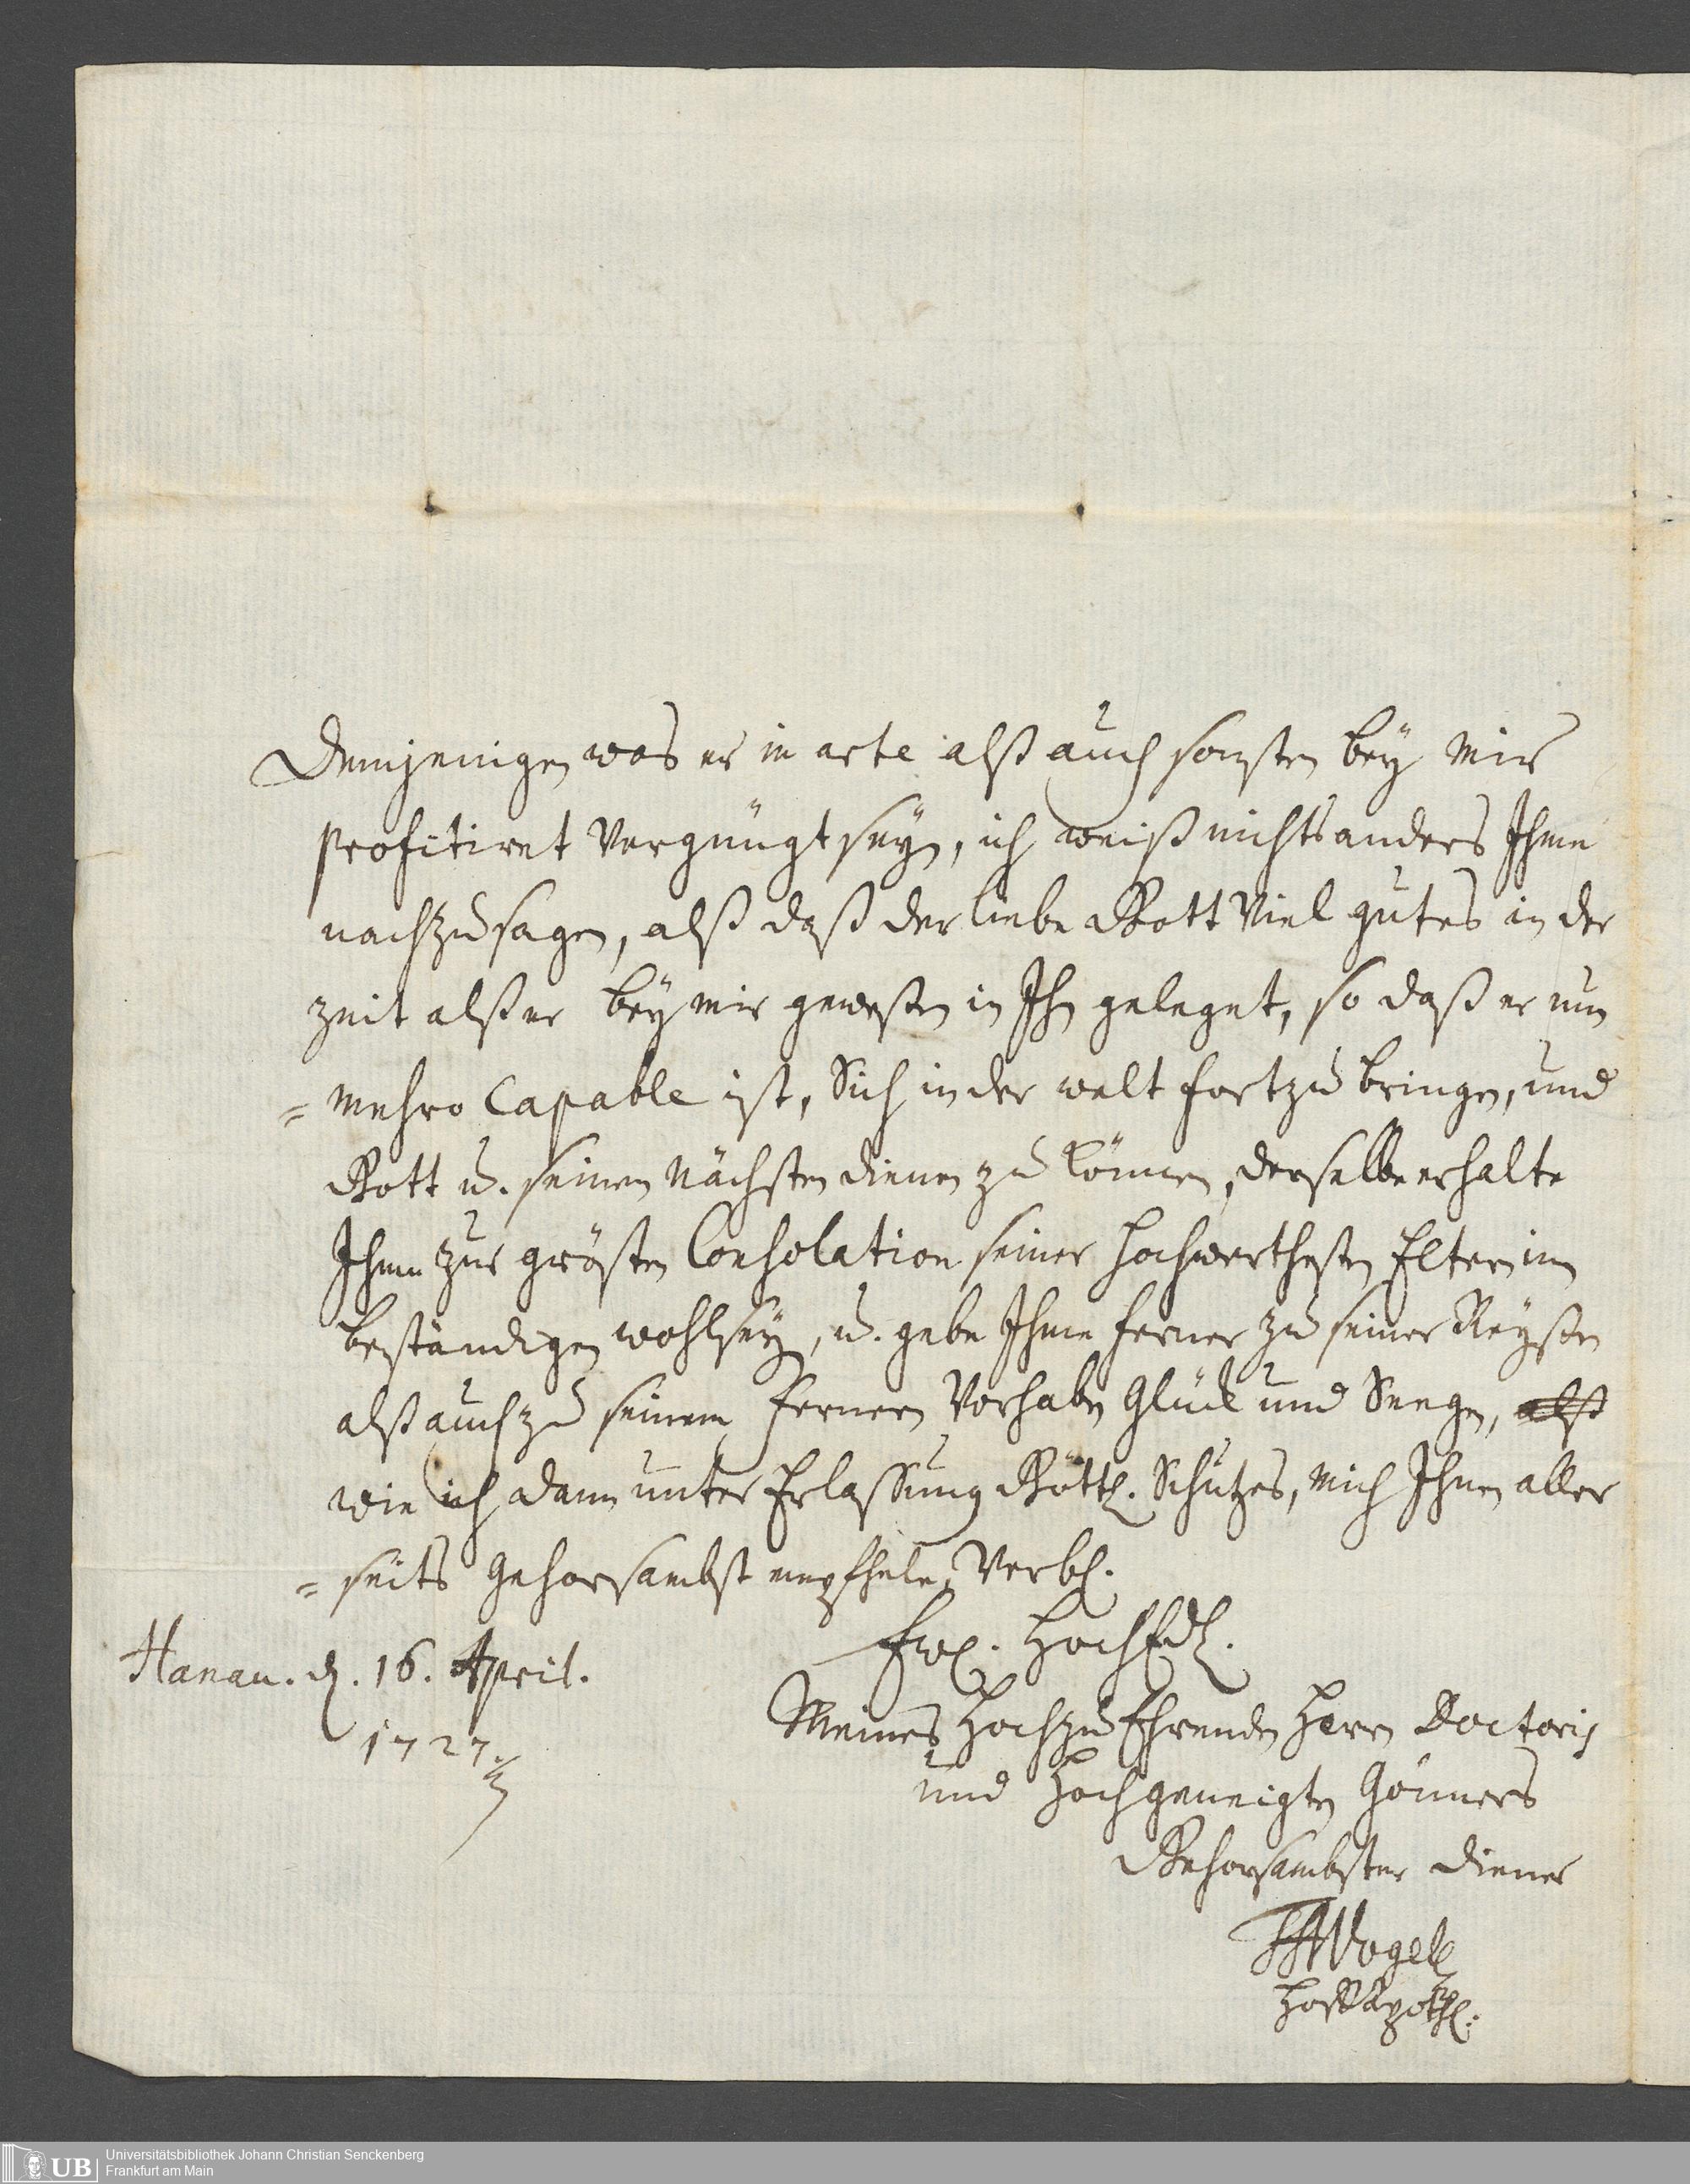 Demjenigen was er in arte alß auch sonsten bey mir
profitiret Vergnügt seyn, ich weiß nichts anders Ihme
nachzusagen, alß daß der liebe Gott Viel gutes in der
zeit alß er bey mir gewesen in Ihn geleget, so daß er nun
= mehro Capable ist, Sich in der welt fortzubringen, und
Gott u. seinen Nächsten dienen zu können, derselbe erhalte
Ihme zur grösten Consolation seiner Hochwerthesten Eltern im
beständigen wohlseyn, u. gebe Ihme ferner zu seiner Reyße
alß auch zu seinem fernern Vorhaben Glück und Seegen, alß
wie ich dann unter Erlassung Göttl. Schutzes, mich Ihnen aller
= seits Gehorsambst empfhele, Verbl.
Ew. HochEdl.
Hanau. d. 16. April.
1727.
Meines Hochzu Ehrenden Herrn Doctoris
und Hochgeneigten Gönners
Gehorsambster Diener
Vogel
HoffApothl:
UB Universitätsbibliothek Johann Christian Senckenberg
Frankfurt am Main